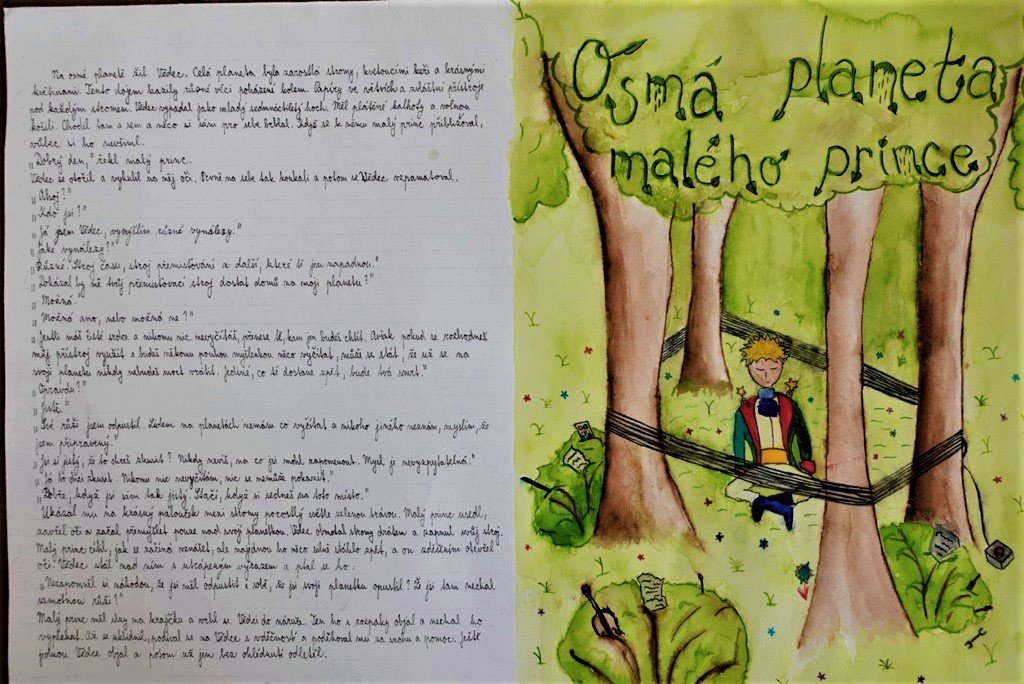 Na osmé planetě žil Vědec. Celá planeta byla zarostlá stromy, kvetoucími keři a krásnými
květinami. Tento dojem kazily různé věci poházené kolem. Papíry ve větvích a zvláštní přístroje
pod každým stromem. Vědec vypadal jako mladý sedmnáctiletý hoch. Měl plátěné kalhoty a volnou
košili. Chodil tam a sem a něco si sám pro sebe brblal. Když se k němu malý princ přibližoval,
vůbec si ho nevšiml.
„Dobrý den," řekl malý princ.
Vědec se otočil a vykulil na něj oči. Prvně na sebe tak koukali a potom se Vědec vzpamatoval.
„Ahoj?"
„Kdo jsi?"
„Já jsem Vědec, vymýšlím různé vynálezy."
„Jaké vynálezy?"
„Různé. Stroj času, stroj přemisťování a další, které tě jen napadnou."
„Dokázal by mě tvůj přemisťovací stroj dostat domů na moji planetu?"
„Možná."
„Možná ano, nebo možná ne?"
„Jestli máš čisté srdce a nikomu nic nevyčítáš, přenese tě, kam jen budeš chtít. Avšak pokud se rozhodneš
můj přístroj využít a budeš někomu pouhou myšlenkou něco vyčítat, může se stát, že už se na
svoji planetu nikdy nebudeš moct vrátit. Jediné, co tě dostane zpět, bude tvá smrt."
„Opravdu?"
„Jistě."
„Své růži jsem odpustil. Lidem na planetách nemám co vyčítat a nikoho jiného neznám, myslím, že
jsem připravený."
„Jsi si jistý, že to chceš zkusit? Nikdy nevíš, na co jsi mohl zapomenout. Mysl je nevyzpytatelná."
„Já to chci zkusit. Nikomu nic nevyčítám, nic se nemůže pokazit."
„Dobře, když jsi sám tak jistý. Stačí, když si sedneš na toto místo."
Ukázal mu na krásný palouček mezi stromy porostlý světle zelenou trávou. Malý princ usedl,
zavřel oči a začal přemýšlet pouze nad svojí planetkou. Vědec obmotal stromy drátem a zapnul svůj stroj.
Malý princ cítil, jak se začíná vznášet, ale najednou ho něco silně stáhlo zpět, a on zděšeně otevřel
oči. Vědec stál nad ním s utrápeným výrazem a ptal se ho:
„Nezapomněl si náhodou, že jsi měl odpustit i sobě, že jsi svoji planetku opustil? Že jsi tam nechal
samotnou růži?"
Malý princ měl slzy na krajíčku a vrhl se Vědci do náruče. Ten ho s rozpaky objal a nechal ho
vyplakat. Až se uklidnil, podíval se na Vědce s vděčností a poděkoval mu za snahu a pomoc. Ještě
jednou Vědce objal a potom už jen bez ohlédnutí odletěl.
Osmá planeta
malého prince